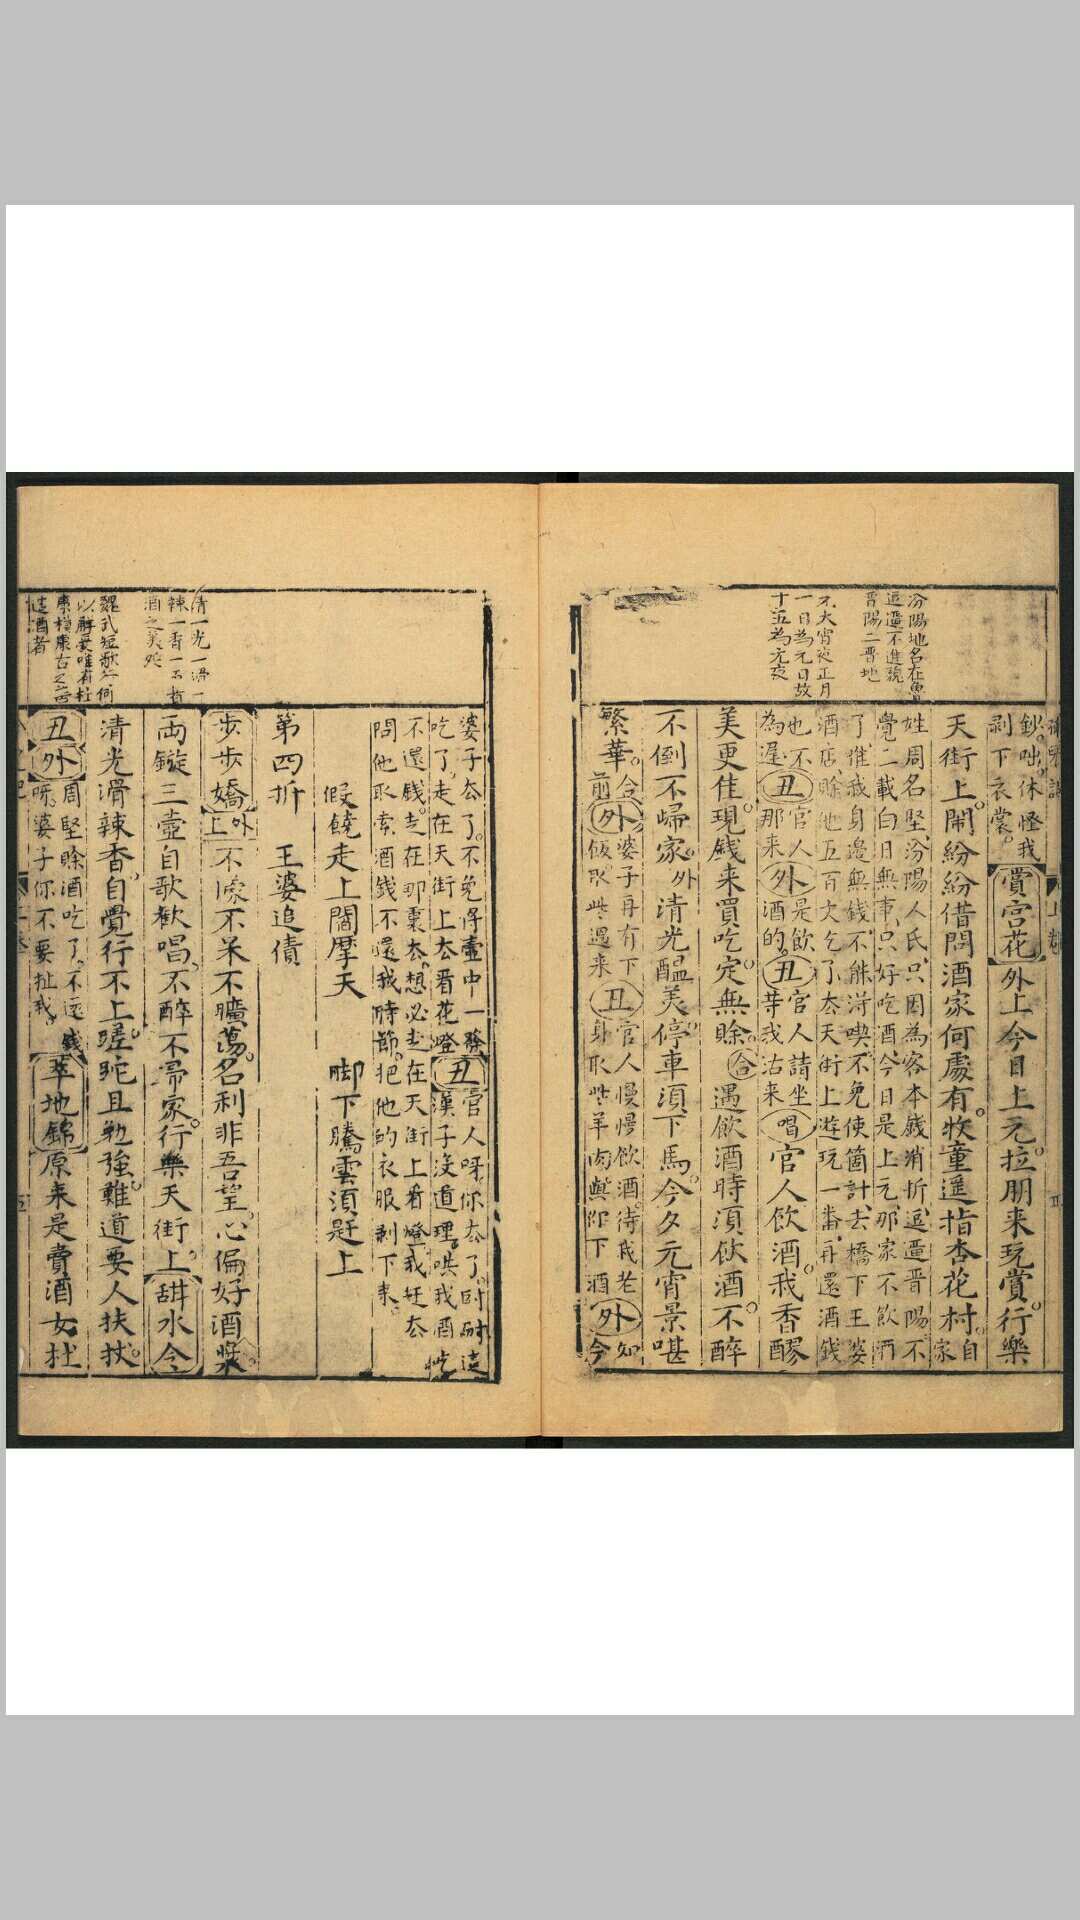 汾陽地名在魯
逗遛不進貌
晋陽二晋地
元大宵夜正月
一日為元日故
十五為元夜
鈔。咄。休怪我
剥下衣裳。賞宫花外上今日上元拉。朋来玩賞。行樂
天街上。閙紛紛借問酒家何處有。牧童遥指杏花村。自家
姓周名堅汾陽人氏只因為客本錢消折逗遛晋陽不
覺二載白日無事只好吃酒今日是上元那家不飲酒
了唯我身邊無錢不能淂喫不免使箇計去橋下王婆
酒店賒他五百文乞了去天街上遊玩一番再還酒錢
也不為遲丑官人那来外是飲酒的丑官人請坐等我沽来唱官人飲酒我。香醪
美更佳。現錢来買吃。定無賒。合遇飲酒時湏飲酒。不醉
不倒不㱕家。外清光醖美停車湏下馬。今夕元宵景堪
繁華。合前外婆子再有下飯取些過来丑官人慢慢飲酒。待我老身取些羊肉與你下酒外知今
婆子去了。不免將壷中一發吃了走在天街上去看花燈丑官人呀你去了。叵耐這
漢子没道理。哄我酒吃不還錢。走在那裏去。想必走在天街上看燈我赶去
問他取索酒錢不還我時節。把他的衣服剥下来。
假饒走上閻摩天 脚下騰雲湏赶上
第四折 王婆追債
清一光一滑一
辣一香一名皆
酒之美処
魏武短歌行何
以解憂唯有杜
康杜康古之善
造酒者
步步嬌外上不傢不呆不曠蕩。名利非吾望。心偏好酒漿。
両鏇三壷自歌歡唱。不醉不㱕家。行樂天街上。甜水令
清光滑辣香。自覺行不上。蹉跎且勉強。難道要人扶扙。
丑外周堅賒酒吃了不还錢呀。婆子你不要扯我。萃地錦原来是賣酒女杜